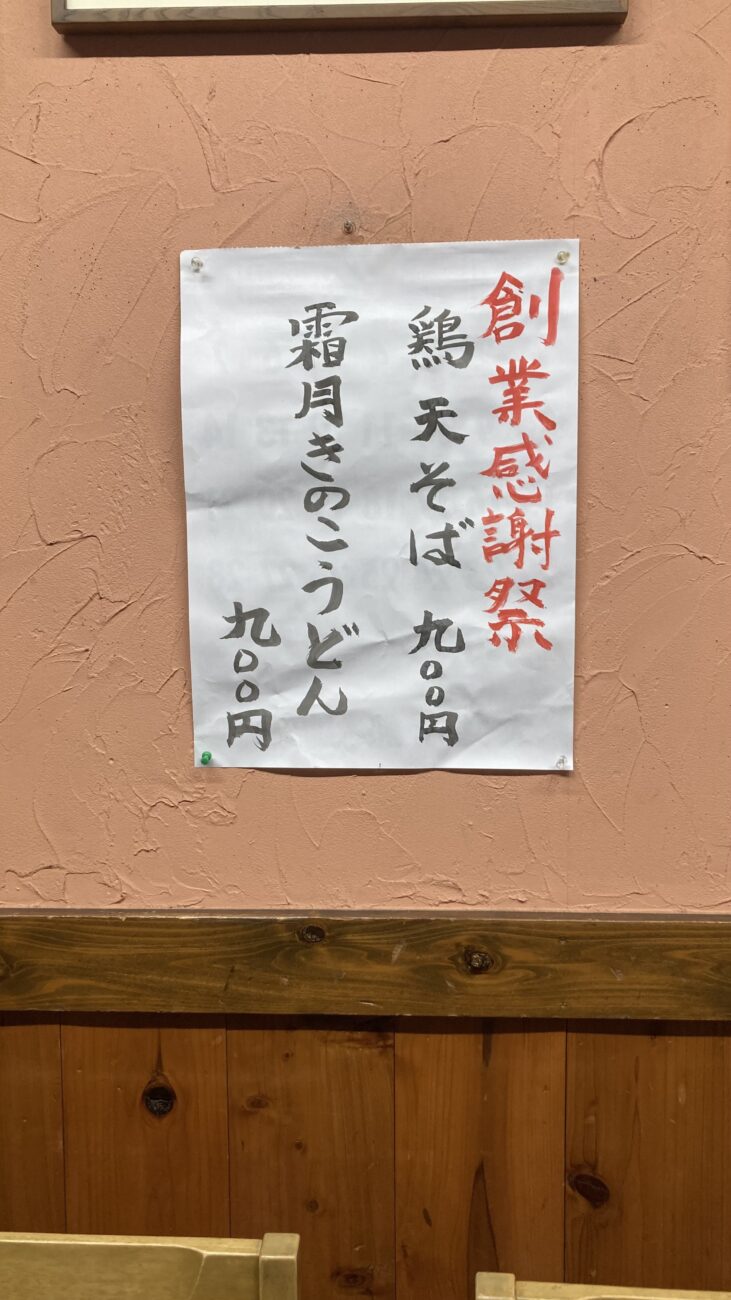 創業感謝祭
鶏天そば 九〇〇円
霜月きのこうどん
九〇〇円